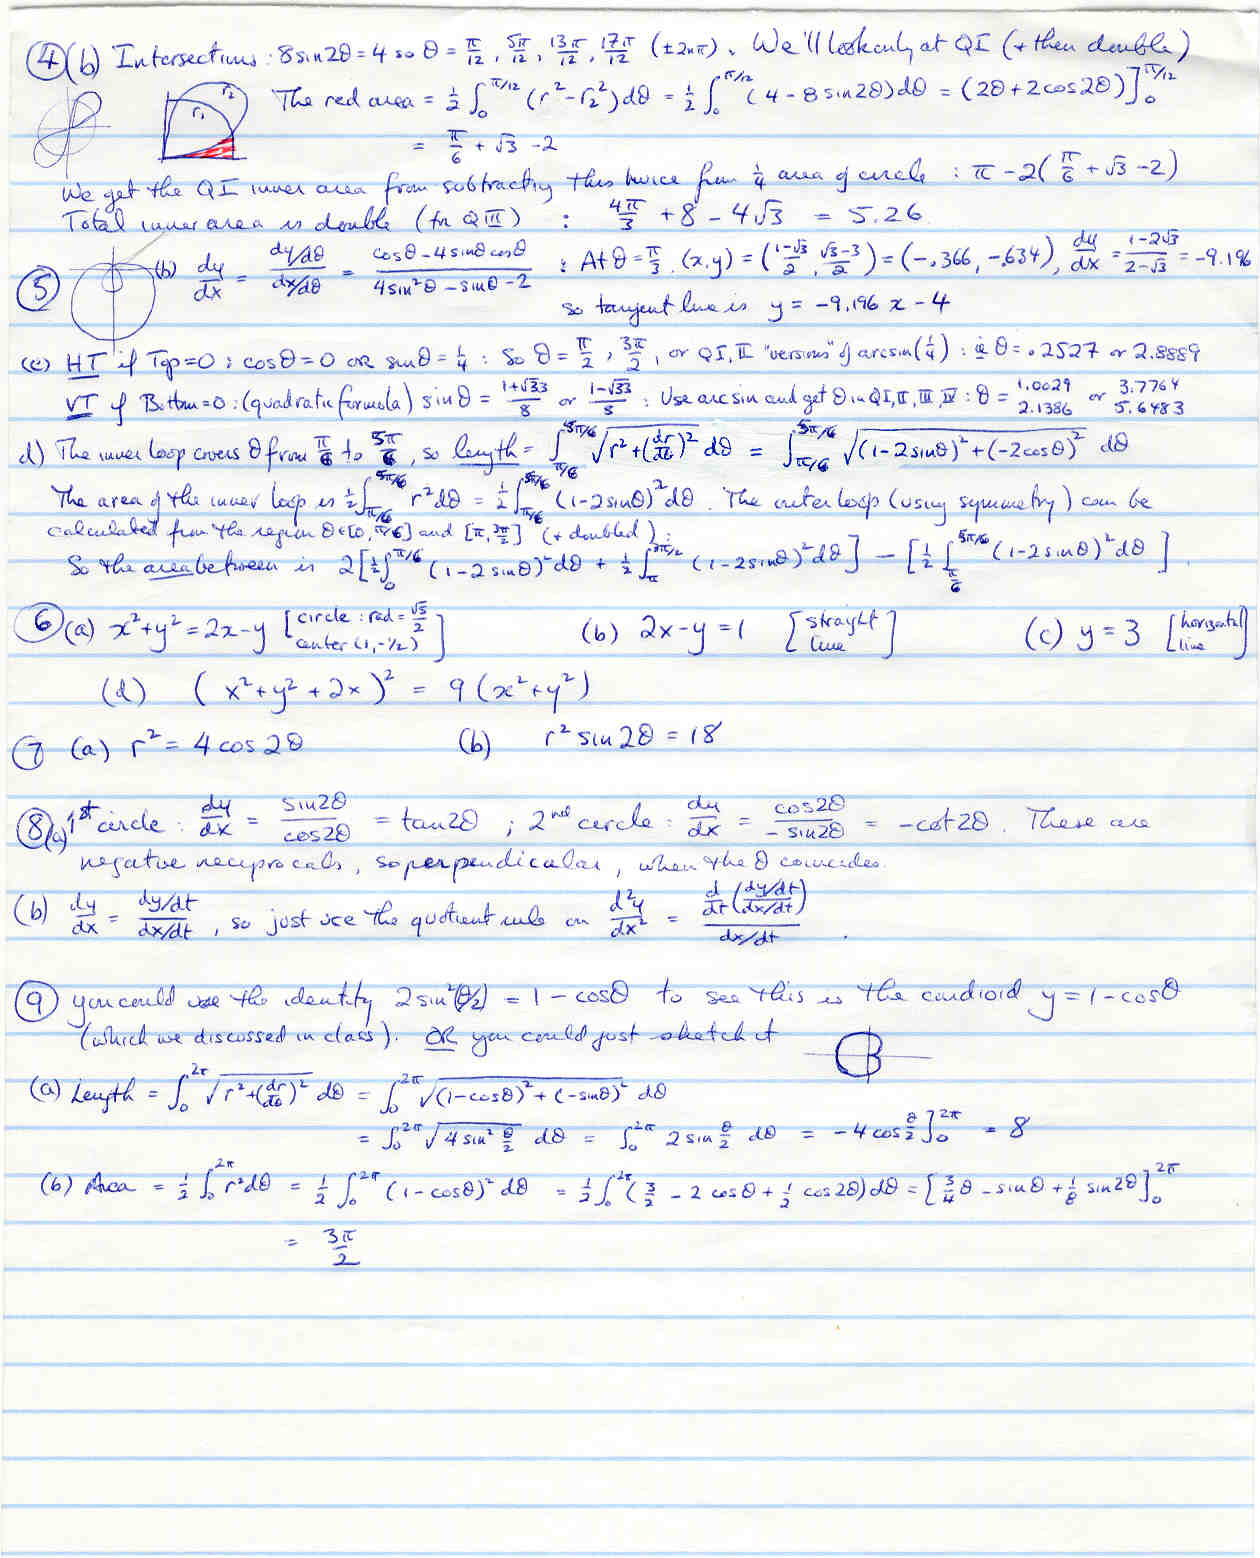 ④(b) Intersections : 8 sin 2θ = 4 so θ = π/12, 5π/12, 13π/12, 17π/12 (± 2nπ). We'll look only at QI (+ then double)
r₂
r₁
The red area = ½ ∫₀^{π/12} (r² - r₂²) dθ = ½ ∫₀^{π/12} (4 - 8 sin 2θ) dθ = (2θ + 2 cos 2θ)]₀^{π/12}
= π/6 + √3 - 2
We get the QI inner area from subtracting this twice from ¼ area of circle : π - 2(π/6 + √3 - 2)
Total inner area is double (for QIII) : 4π/3 + 8 - 4√3 = 5.26.
⑤ (b) dy/dx = (dy/dθ)/(dx/dθ) = (cosθ - 4 sinθ cosθ)/(4 sin²θ - sinθ - 2) : At θ = π/3, (x,y) = ((1-√3)/2, (√3-3)/2) = (-.366, -.634), dy/dx = (1-2√3)/(2-√3) = -9.196
so tangent line is y = -9.196 x - 4
(c) HT if Top=0 : cosθ = 0 OR sinθ = ¼ : So θ = π/2, 3π/2, or QI, II "versions" of arcsin(¼) : ie θ = .2527 or 2.8889
VT if Bottom=0 : (quadratic formula) sinθ = (1+√33)/8 or (1-√33)/8 : Use arcsin and get θ in QI, II, III, IV : θ = 1.0029 2.1386 or 3.7764 5.6483
d) The inner loop covers θ from π/6 to 5π/6, so length = ∫_{π/6}^{5π/6} √(r² + (dr/dθ)²) dθ = ∫_{π/6}^{5π/6} √((1-2 sinθ)² + (-2cosθ)²) dθ
The area of the inner loop is ½ ∫_{π/6}^{5π/6} r² dθ = ½ ∫_{π/6}^{5π/6} (1-2sinθ)² dθ. The outer loop (using symmetry) can be
calculated from the region θ∈[0, π/6] and [π, 3π/2] (+ doubled) :
So the area between is 2[½ ∫₀^{π/6} (1-2 sinθ)² dθ + ½ ∫_π^{3π/2} (1-2sinθ)² dθ] - [½ ∫_{π/6}^{5π/6} (1-2 sinθ)² dθ].
⑥ (a) x² + y² = 2x - y [circle : rad = √5/2 center (1, -½)] (b) 2x - y = 1 [straight line] (c) y = 3 [horizontal line]
(d) (x² + y² + 2x)² = 9 (x² + y²)
⑦ (a) r² = 4 cos 2θ (b) r² sin 2θ = 18
⑧(a) 1st circle : dy/dx = sin 2θ/cos 2θ = tan 2θ ; 2nd circle : dy/dx = cos 2θ/-sin 2θ = -cot 2θ. These are
negative reciprocals, so perpendicular, when the θ coincides.
(b) dy/dx = (dy/dt)/(dx/dt), so just use the quotient rule on d²y/dx² = (d/dt((dy/dt)/(dx/dt)))/(dx/dt).
⑨ you could use the identity 2 sin²(θ/2) = 1 - cosθ to see this is the cardioid y = 1 - cosθ
(which we discussed in class). OR you could just sketch it
(a) Length = ∫₀^{2π} √(r² + (dr/dθ)²) dθ = ∫₀^{2π} √((1-cosθ)² + (-sinθ)²) dθ
= ∫₀^{2π} √(4 sin² θ/2) dθ = ∫₀^{2π} 2 sin θ/2 dθ = -4 cos θ/2]₀^{2π} = 8
(b) Area = ½ ∫₀^{2π} r² dθ = ½ ∫₀^{2π} (1 - cosθ)² dθ = ½ ∫₀^{2π} (3/2 - 2 cosθ + ½ cos 2θ) dθ = [¾θ - sinθ + ⅛ sin 2θ]₀^{2π}
= 3π/2